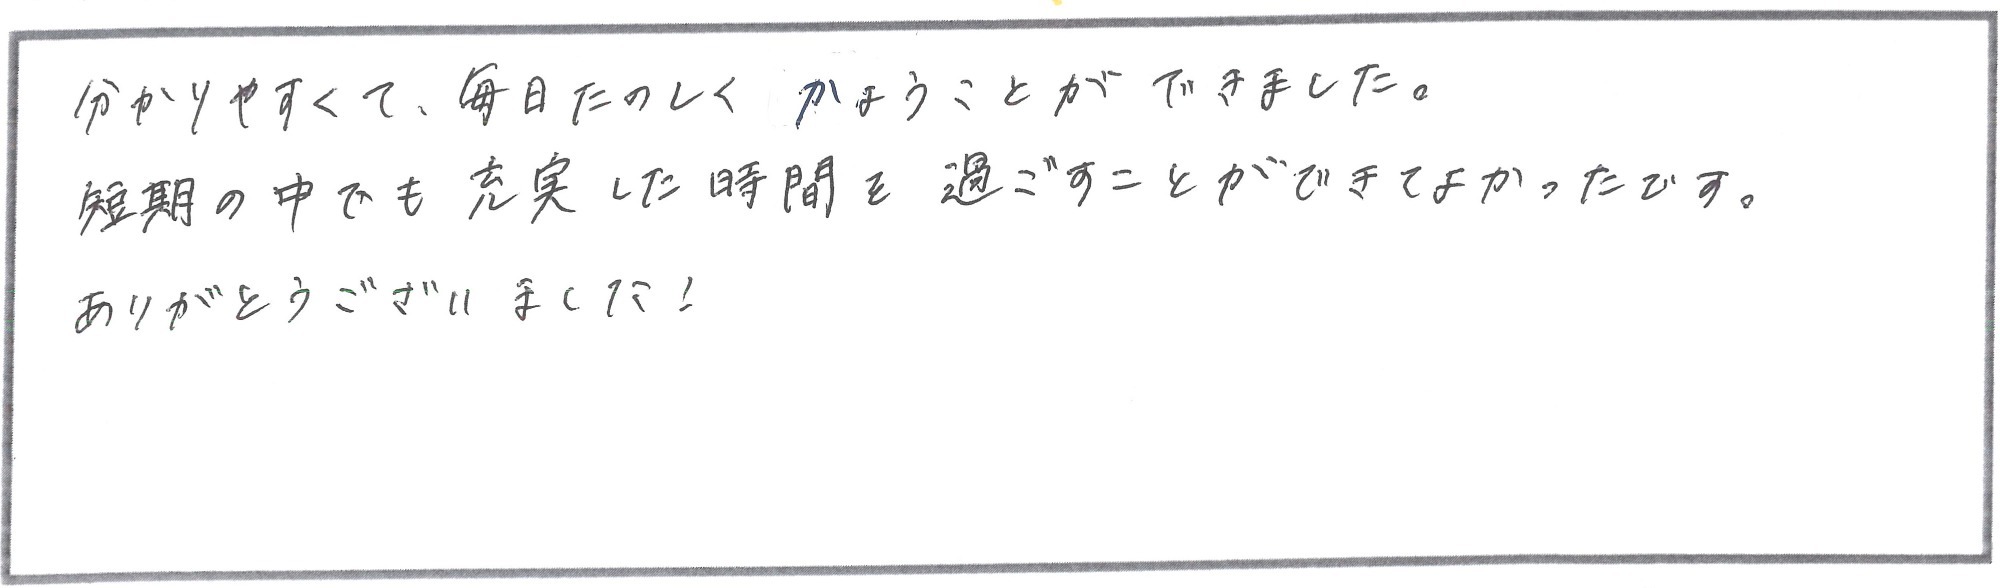 分かりやすくて、毎日たのしくかようことができました。
短期の中でも充実した時間を過ごすことができてよかったです。
ありがとうございました!